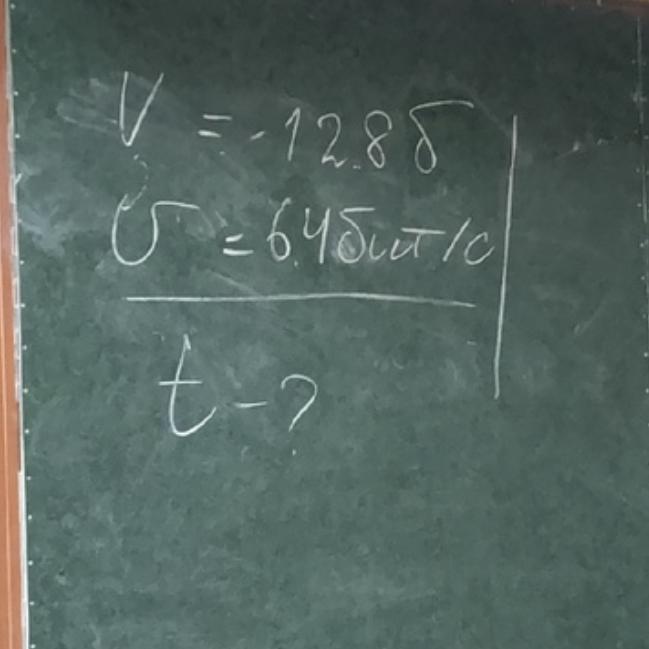 V = 128 б
υ = 64 бит/с
t - ?